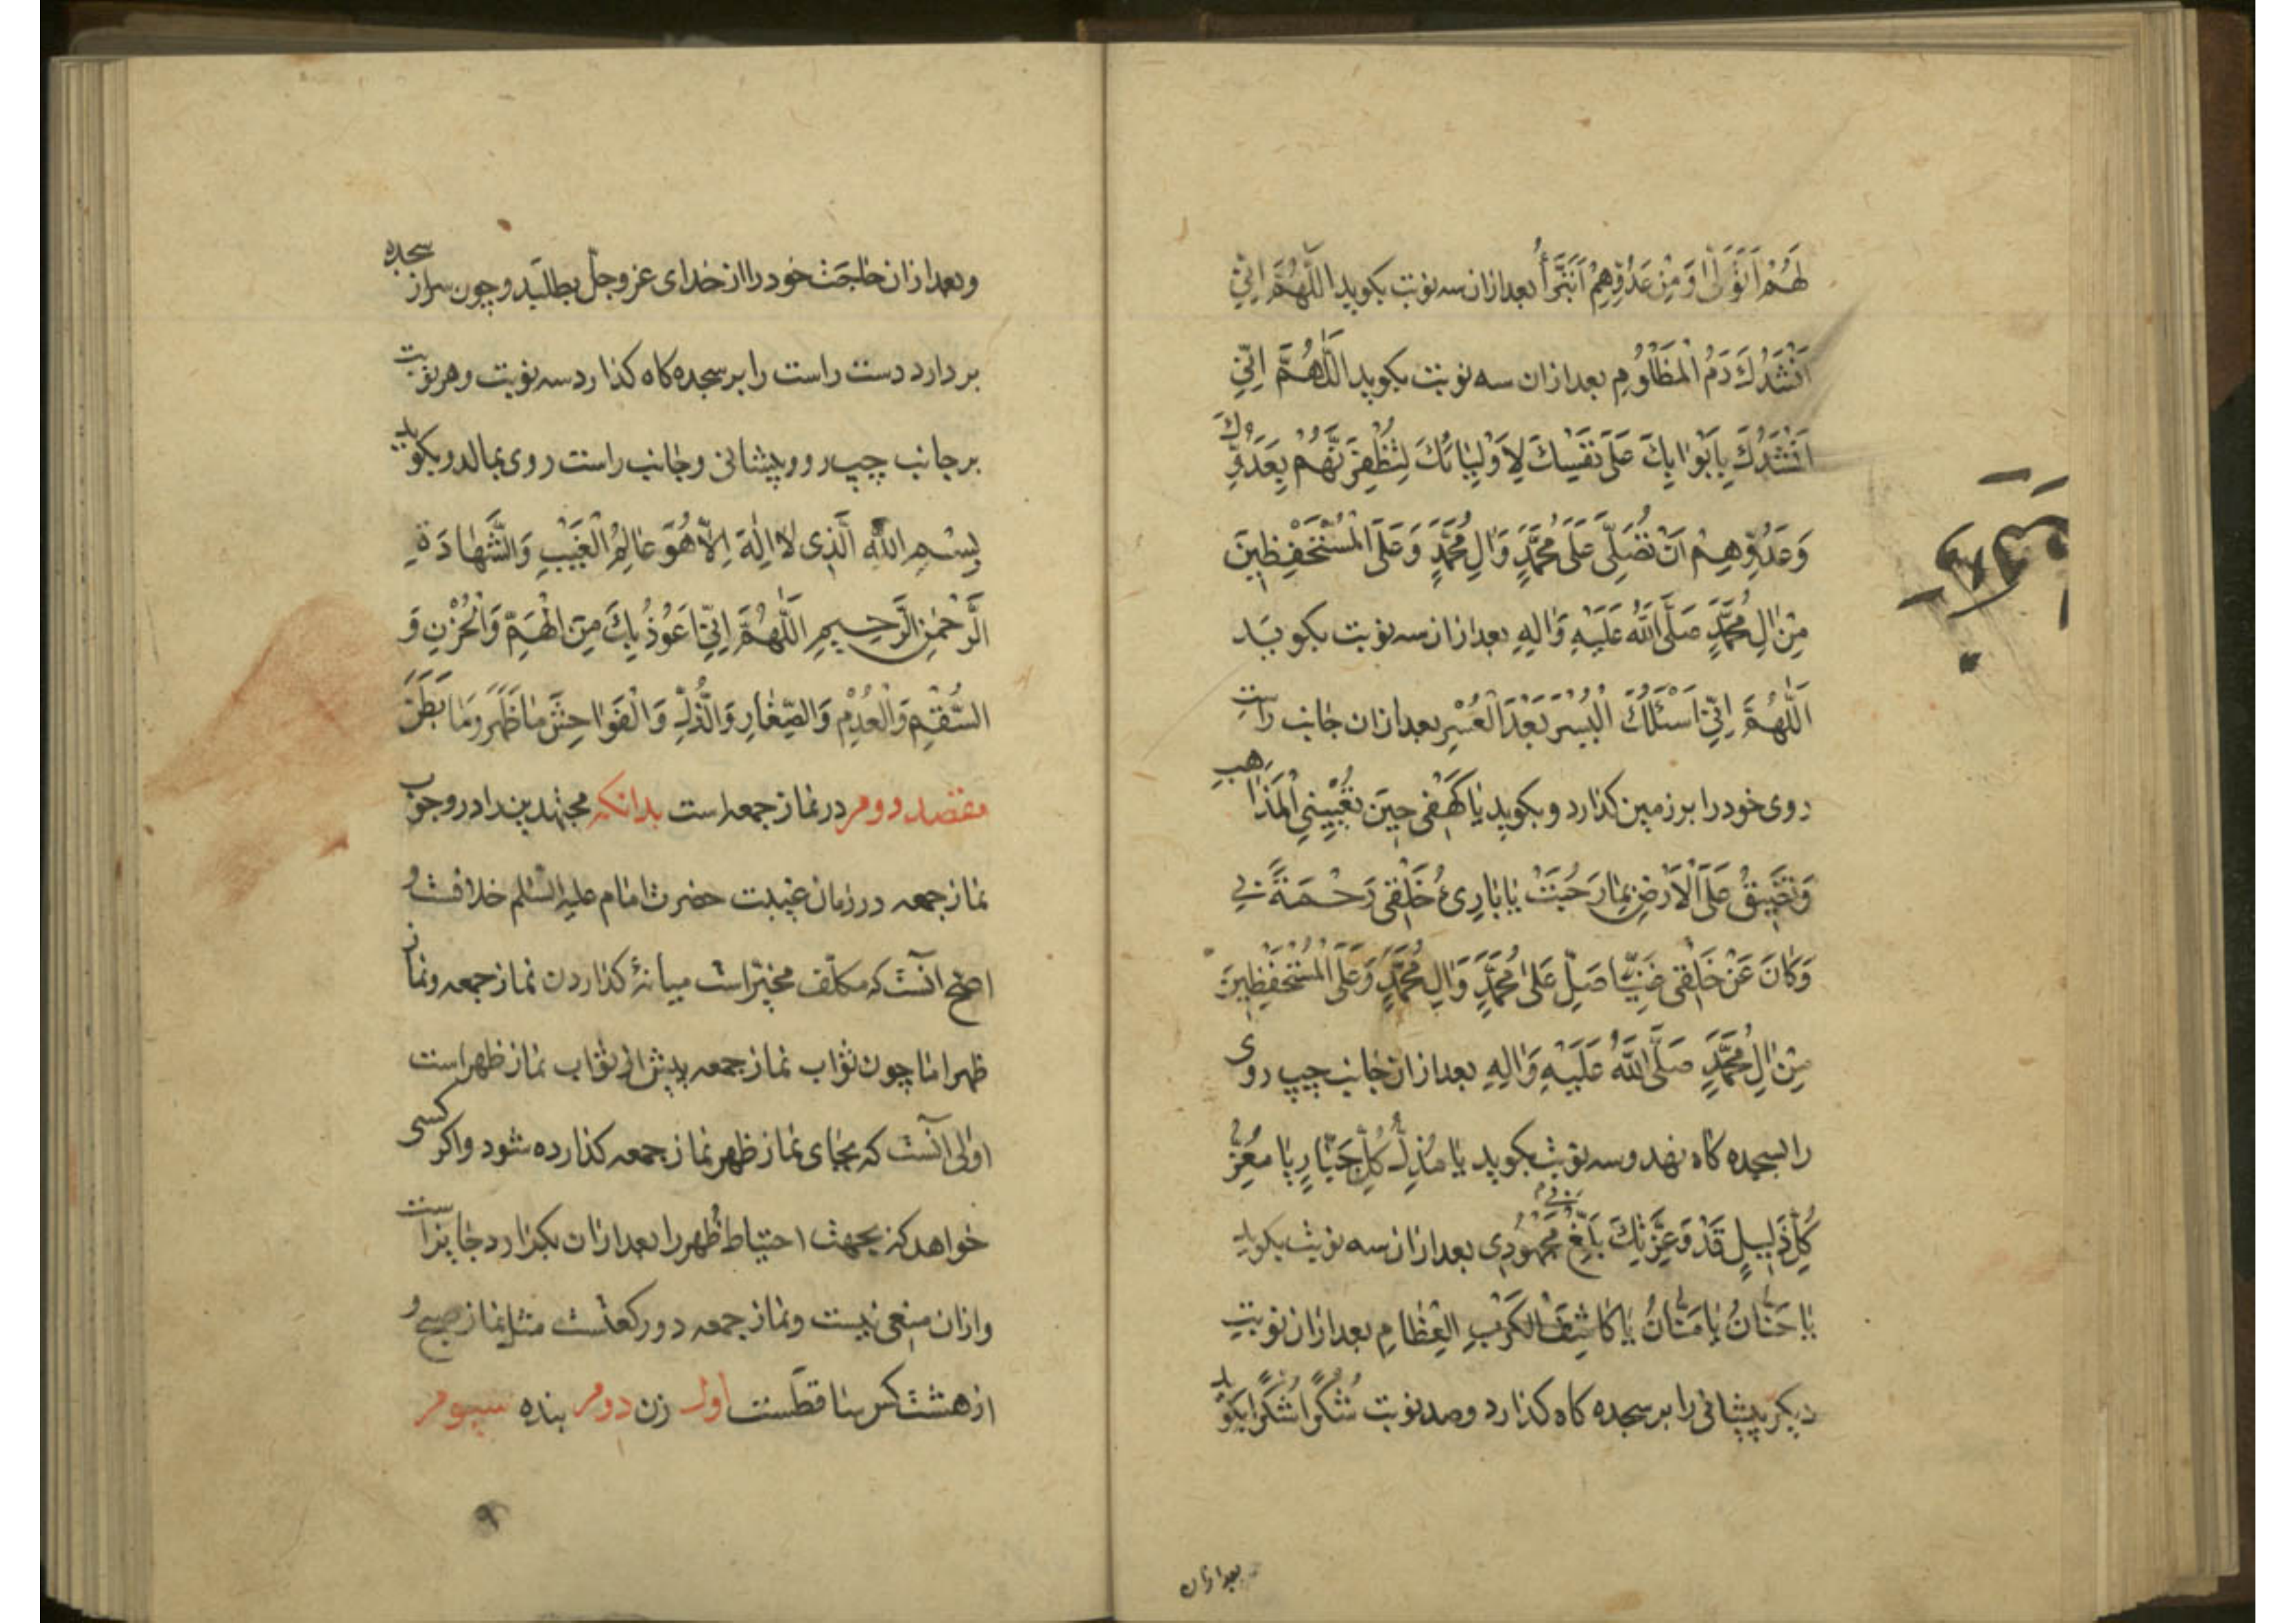 لَهُمْ اَتَوَلّٰى وَمِنْ عَدُوِّهِمْ اَتَبَرَّأُ بعدازان سه نوبت بکوید اَللّٰهُمَّ اِنّي
اَنْشُدُكَ دَمَ الْمَظْلُومِ بعدازان سه نوبت بکوید اَللّٰهُمَّ اِنّي
اَنْشُدُكَ بِاَبْوٰابِكَ عَلٰى نَفْسِكَ لِاَوْلِيٰائِكَ لِتُظْفِرَنَّهُمْ بِعَدُوِّكَ
وَعَدُوِّهِمْ اَنْ تُصَلِّيَ عَلٰى مُحَمَّدٍ وَاٰلِ مُحَمَّدٍ وَعَلَى الْمُسْتَحْفِظينَ
مِنْ اٰلِ مُحَمَّدٍ صَلَّى اللّٰهُ عَلَيْهِ وَاٰلِهِ بعدازان سه نوبت بکوید
اَللّٰهُمَّ اِنّي اَسْئَلُكَ الْيُسْرَ بَعْدَ الْعُسْرِ بعدازان جانب راست
روی خود را بر زمین کذارد و بکوید يٰا كَهْفي حينَ تُعْيينِي الْمَذٰاهِبُ
وَتَضيقُ عَلَيَّ الْاَرْضُ بِمٰا رَحُبَتْ يٰا بٰارِئَ خَلْقي رَحْمَةً بي
وَكٰانَ عَنْ خَلْقي غَنِيّاً صَلِّ عَلٰى مُحَمَّدٍ وَاٰلِ مُحَمَّدٍ وَعَلَى الْمُسْتَحْفِظينَ
مِنْ اٰلِ مُحَمَّدٍ صَلَّى اللّٰهُ عَلَيْهِ وَاٰلِهِ بعدازان جانب چپ روی
را بسجده کاه نهد و سه نوبت بکوید يٰا مُذِلَّ كُلِّ جَبّٰارٍ يٰا مُعِزَّ
كُلِّ ذَليلٍ قَدْ وَعِزَّتِكَ بَلَغَ مَجْهُودي بعدازان سه نوبت بکوید
يٰا حَنّٰانُ يٰا مَنّٰانُ يٰا كٰاشِفَ الْكُرَبِ الْعِظٰامِ بعدازان نوبت
دیکر پیشانی را بر سجده کاه کذارد و صد نوبت شُكْراً شُكْراً بکوید
بعدازان
وبعدازان حاجت خود را از خدای عز وجل بطلبد و چون سر از سجده
بردارد دست راست را بر سجده کاه کذارد سه نوبت و هر نوبت
بر جانب چپ رو و پیشانی و جانب راست روی بمالد و بکوید
بِسْمِ اللّٰهِ الَّذي لٰا اِلٰهَ اِلّٰا هُوَ عٰالِمُ الْغَيْبِ وَالشَّهٰادَةِ
الرَّحْمٰنِ الرَّحيمِ اَللّٰهُمَّ اِنّي اَعُوذُ بِكَ مِنَ الْهَمِّ وَالْحُزْنِ وَ
السُّقْمِ وَالْعُدْمِ وَالصِّغٰارِ وَالذُّلِّ وَالْفَوٰاحِشَ مٰا ظَهَرَ وَمٰا بَطَنَ
مقصد دوم در نماز جمعه است بدانکه مجتهدین را در وجوب
نماز جمعه در زمان غیبت حضرت امام علیه السلم خلافست و
اصح آنست که مکلف مخیّر است میانهٔ کذاردن نماز جمعه و نماز
ظهر اما چون ثواب نماز جمعه بیش از ثواب نماز ظهر است
اولی آنست که بجای نماز ظهر نماز جمعه کذارده شود و اکر کسی
خواهد که بجهت احتیاط ظهر را بعدازان بکذارد جایز است
و ازان منعی نیست و نماز جمعه دو رکعتست مثل نماز صبح و
از هشت کس ساقطست اول زن دوم بنده سیوم